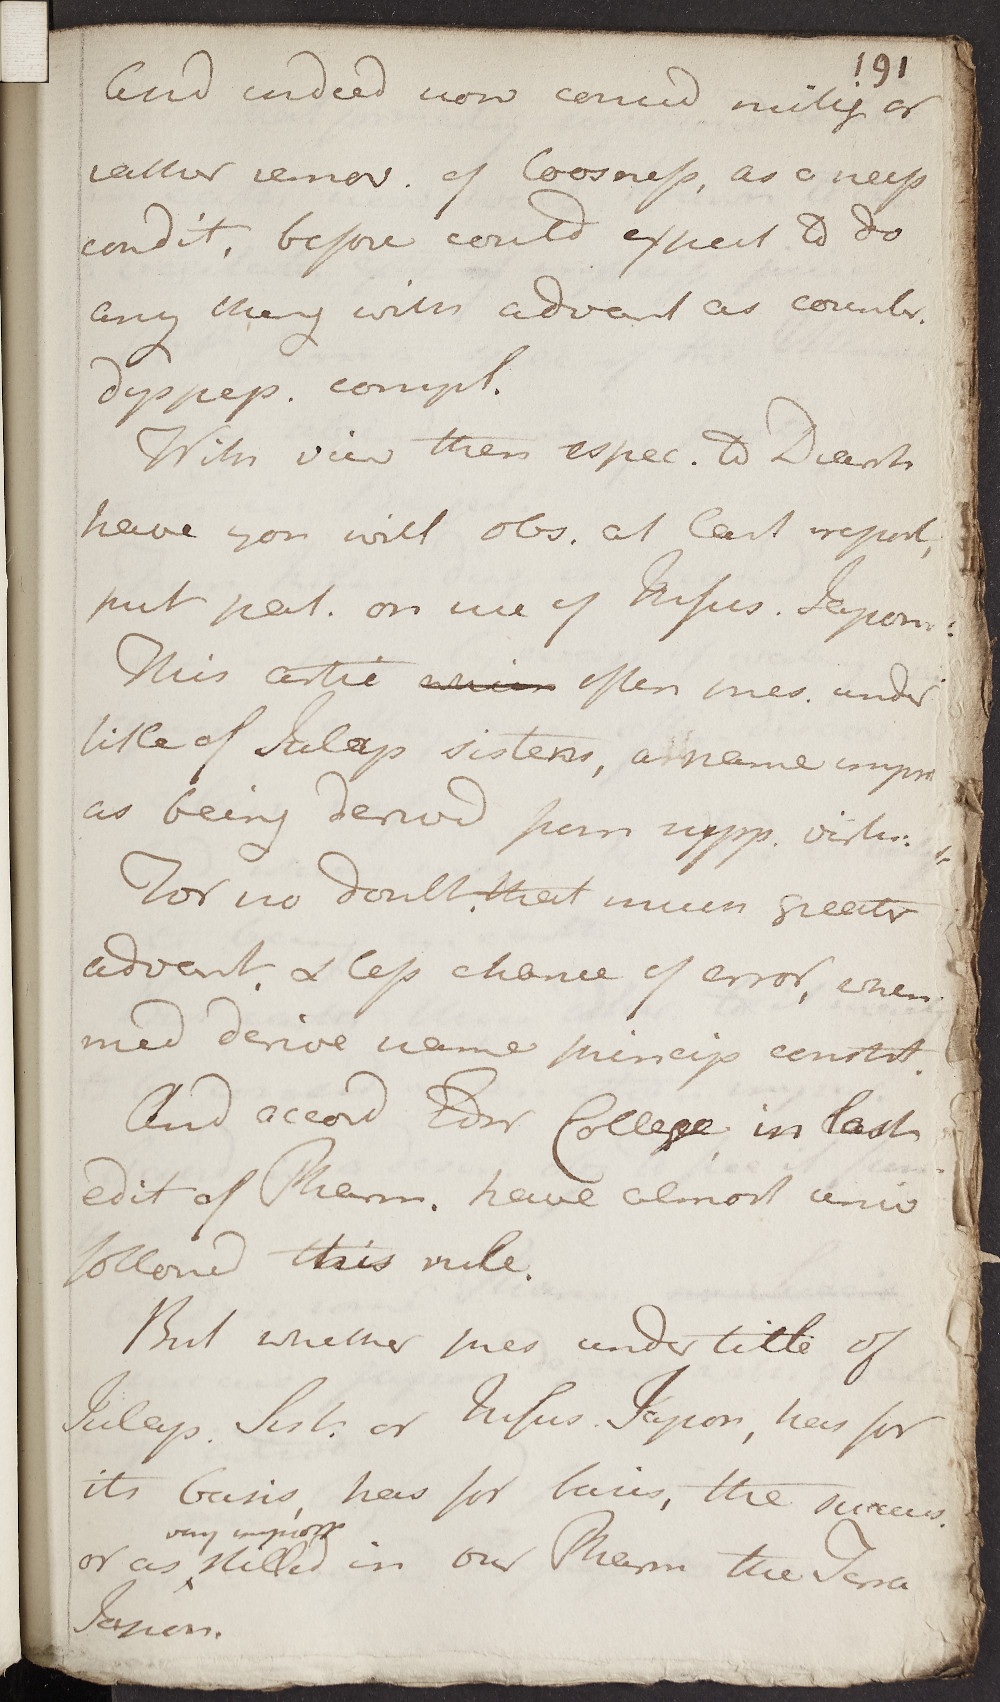 191
And indeed now consid mitig or
rather remov. of loosness, as a ness
condit, before could expect to do
any thing with advant as counter.
dyspep. compl.
With view then espec. to Diarrh
have you will obs. at last report,
put pat. on use of Infus. Japon:
This artic which often pres. under
title of Julap sistens, a name impr
as being derived from supp. virtu:
For no doubt that much greater
advant. & less chance of error, when
med derive name princip constit.
And accord Edinr College, in last
edit of Pharm. have almost univ
followed this rule.
But whether pres under title of
Julap. Sist. or Infus. Japon, has for
its basis, has for basis, the succus.
very improp
or as stiled in our Pharm the Terra
Japon.